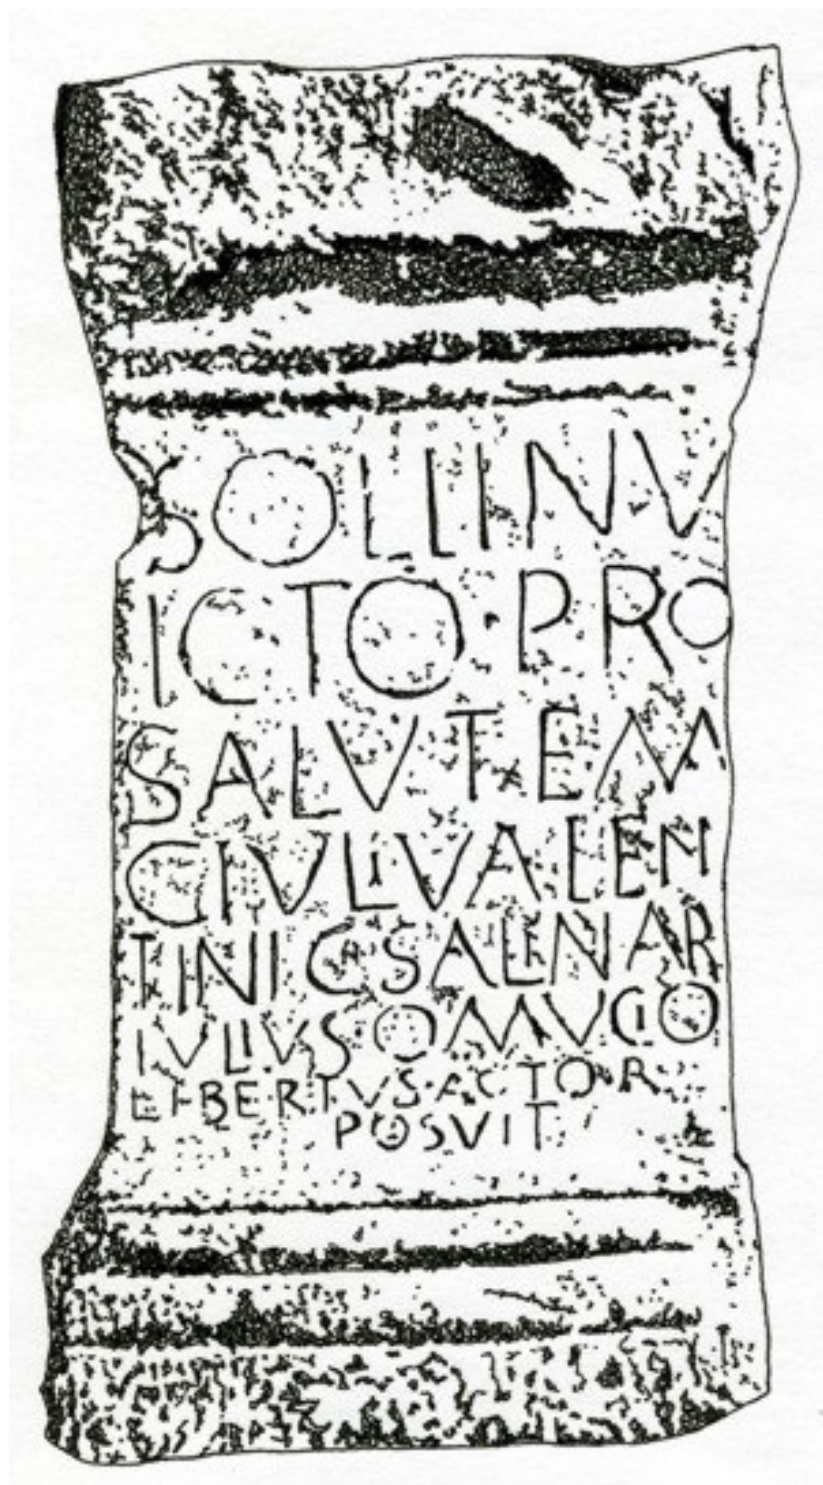 SOLI INV
ICTO PRO
SALVTEM
C IVLI VALEN
TINI C SALINAR
IVLIVS OMVCIO
LIBERTVS ACTOR
POSVIT